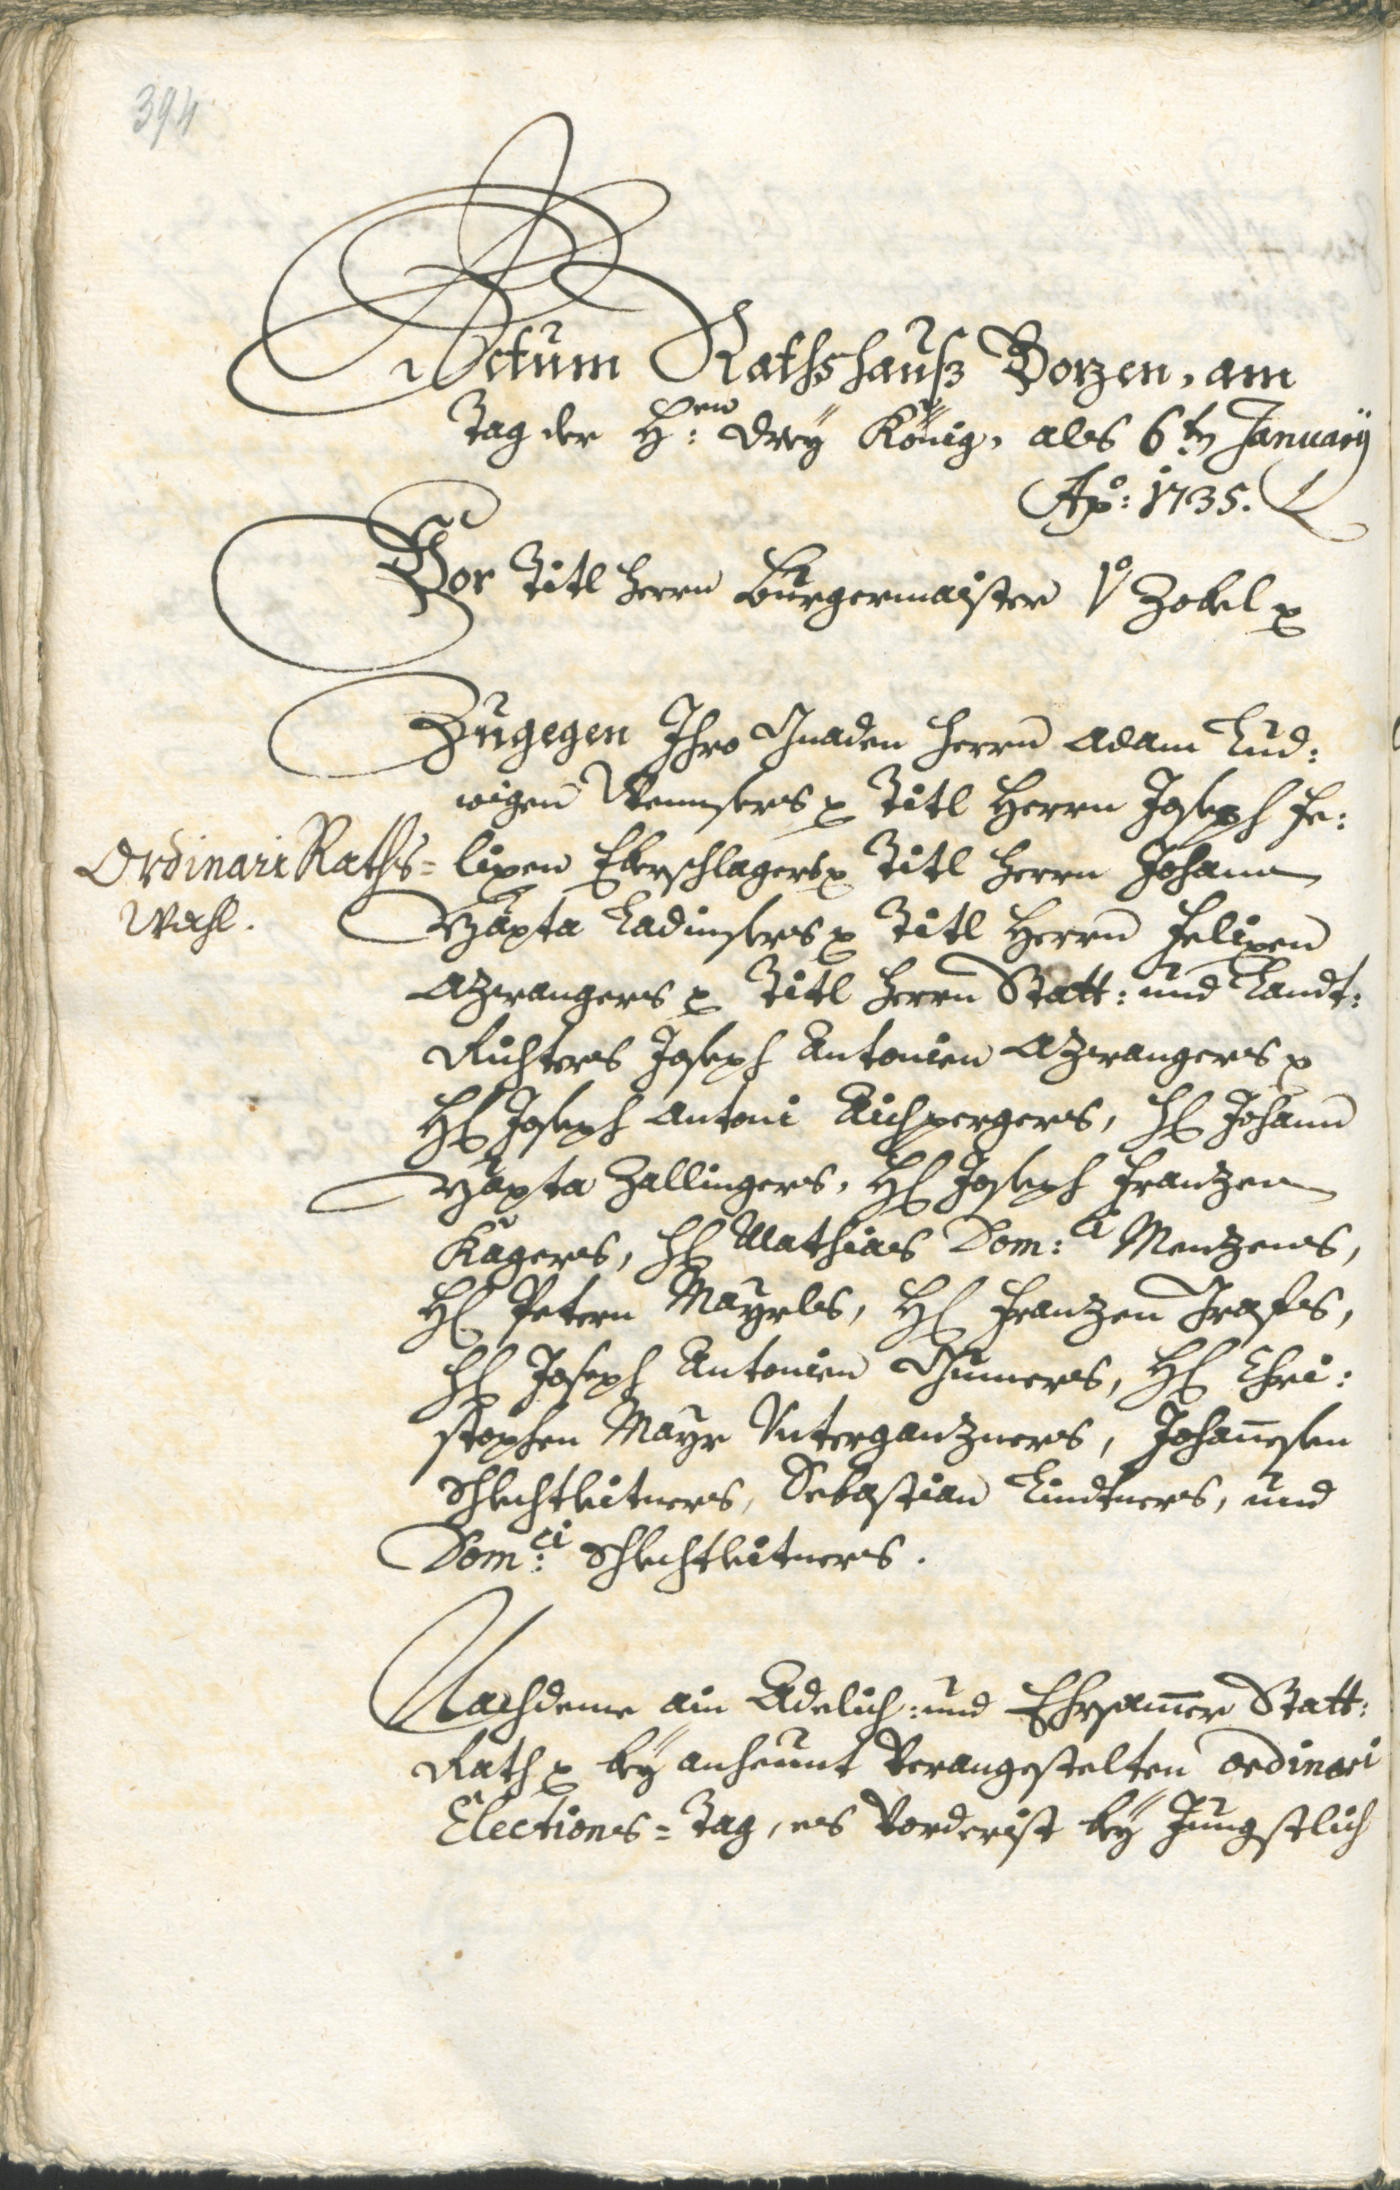 394
Actum Rathshauß Bozen, am
Tag der H:en drey König, als 6ten January
Ao: 1735.
Vor Titl herrn Burgermaister Vo Zobel
Zugegen Ihro Gnaden herrn Adam Lud:
wigen Wennsers Titl Herrn Joseph Fe:
Ordinari Raths=
Wahl.
lixen Eberschlagers Titl herrn Johann
Bapta Ladinsers Titl Herrn Felixen
Azwangers Titl herrn Statt: und Landt:
Richters Joseph Antonien Azwangers
H Joseph Antoni Aichpergers, H Johann
Bapta Zallingers, H Joseph Frantzen
Kagers, H Mathias Dom:ci Mentzens,
H Petern Mayrls, H Frantzen Grafs,
H Joseph Antonien Gumers, H Chri:
stophen Mayr Unterganzners, Johannesen
Schlechtleitners, Sebastian Lindtners, und
Dom:ci Schlechtleitners.
Nachdeme ain Adelich: und Ehrsammer Statt:
Rath bey anheunt Verangestelten ordinari
Elections=Tag, es Vorderist bey Jungstlich